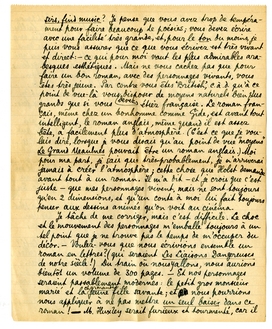 sire, fini music! Je pense que vous avez trop de tempéra-
ment pour faire beaucoup de poésies, vous devez écrire
avec une facilité très grande, et, pour le ton du moins, je
puis vous assurer que ce que vous écrivez est très vivant
et direct: - ce qui pour moi vaut les plus admirables ara-
besques esthétiques. Mais ne vous cachez pas que pour
faire un bon roman, avec des personnages vivants, vous
êtes très jeune. Par contre vous êtes British, c à d qu'à ce
point de vue-là vous disposez de moyens naturels bien plus
grands que si vous étiez française. Le roman fran-
çais, même chez un bonhomme comme Gide, est avant tout
intelligent, le roman anglais, même quand il est assez
, a facilement plus d'atmosphère. (C'est ce que je vou-
lais dire, lorsque je vous disais qu'au point de vue moyens
Le Grand Meaulnes pourrait être un roman anglais.) Moi
pour ma part, je sais que irréprobablement, je n'arriverai
jamais à créer d'atmosphère: cette chose que Balzac demande
avant tout à un roman. Il m'a dit - et je crois que c'est
juste - que mes personnages vivent, mais ne sont toujours
qu'en 2 dimensions, et qu'un conte à moi lui fait toujours
penser aux dessins animés qu'on voit au cinéma.
Je tâche de me corriger, mais c'est difficile. Le choc
et le mouvement des personnages m'emballe toujours à un
tel point que je ne trouve pas le temps de m'occuper du
décor. - Voulez-vous que nous écrivions ensemble un
roman en lettres? (qui seraient les Liaisons Dangereuses
de notre siècle!) Du train où nous allons, nous aurions
bientôt un volume de 300 pages. - Et nos personnages
seraient passablement modernes: le petit gros monsieur
marié et la jeune fille savante; et nous pourrions
nous appliquer à ne pas mettre un seul baiser dans ce
roman! - M. Huxley serait furieux et tourmenté, car il